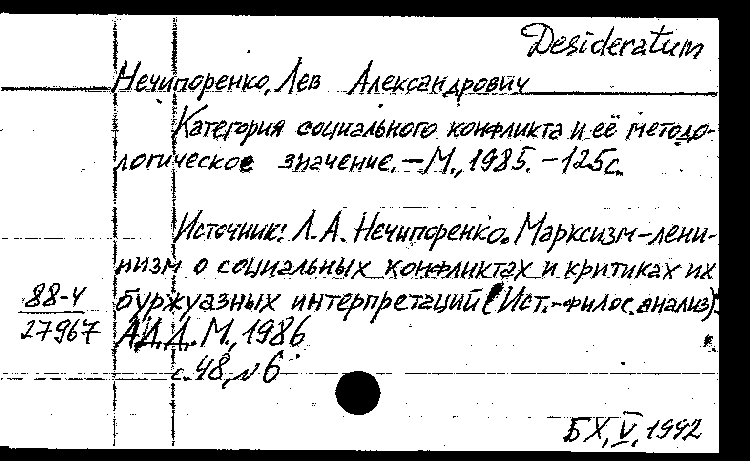 Desideratum
Нечипоренко, Лев Александрович
Категория социального конфликта и её методо-
логическое значение. — М., 1985. — 125с.
Источник: Л.А. Нечипоренко. Марксизм-лени-
низм о социальных конфликтах и критиках их
88-4
буржуазных интерпретаций (Ист.-филос. анализ).
27967
АД.Д. М., 1986
с. 48, № 6
БХ, V, 1992